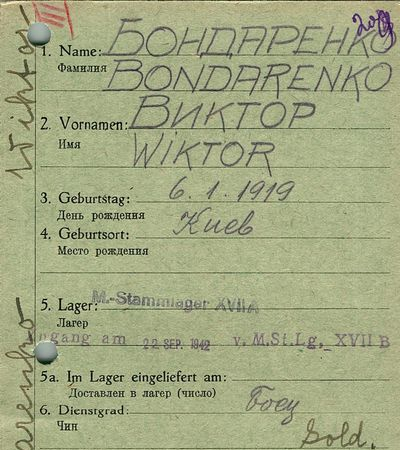 III
1. Name: БОНДАРЕНКО
Фамилия BONDARENKO
2. Vornamen: ВИКТОР
Имя WIKTOR
3. Geburtstag: 6. 1. 1919
День рождения
4. Geburtsort: Киев
Место рождения
5. Lager: M.-Stammlager XVII A
Лагер
gang am 22. SEP. 1942 v. M.St.Lg. XVII B
5a. Im Lager eingeliefert am:
Доставлен в лагер (число)
6. Dienstgrad: Боец
Чин Sold.
Wiktor
arenko